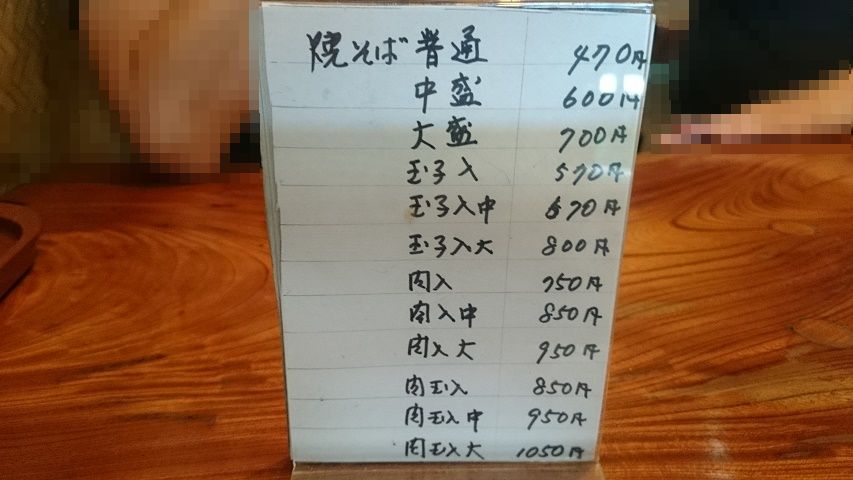 焼そば 普通 470円
中盛 600円
大盛 700円
玉子入 570円
玉子入中 670円
玉子入大 800円
肉入 750円
肉入中 850円
肉入大 950円
肉玉入 850円
肉玉入中 950円
肉玉入大 1050円